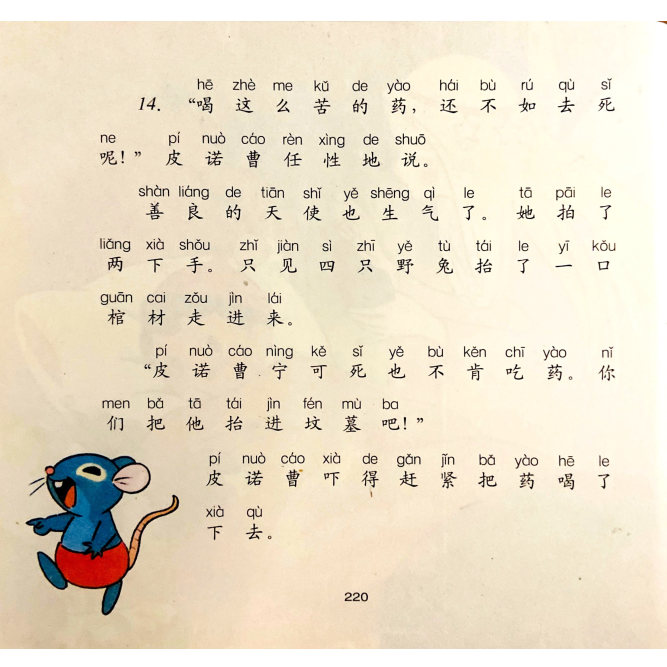 hē zhè me kǔ de yào hái bù rú qù sǐ
14. “喝这么苦的药，还不如去死
ne pí nuò cáo rèn xìng de shuō
呢！” 皮诺曹任性地说。
shàn liáng de tiān shǐ yě shēng qì le tā pāi le
善良的天使也生气了。她拍了
liǎng xià shǒu zhǐ jiàn sì zhī yě tù tái le yī kǒu
两下手。只见四只野兔抬了一口
guān cai zǒu jìn lái
棺材走进来。
pí nuò cáo nìng kě sǐ yě bù kěn chī yào nǐ
“皮诺曹宁可死也不肯吃药。你
men bǎ tā tái jìn fén mù ba
们把他抬进坟墓吧！”
pí nuò cáo xià de gǎn jǐn bǎ yào hē le
皮诺曹吓得赶紧把药喝了
xià qù
下去。
220